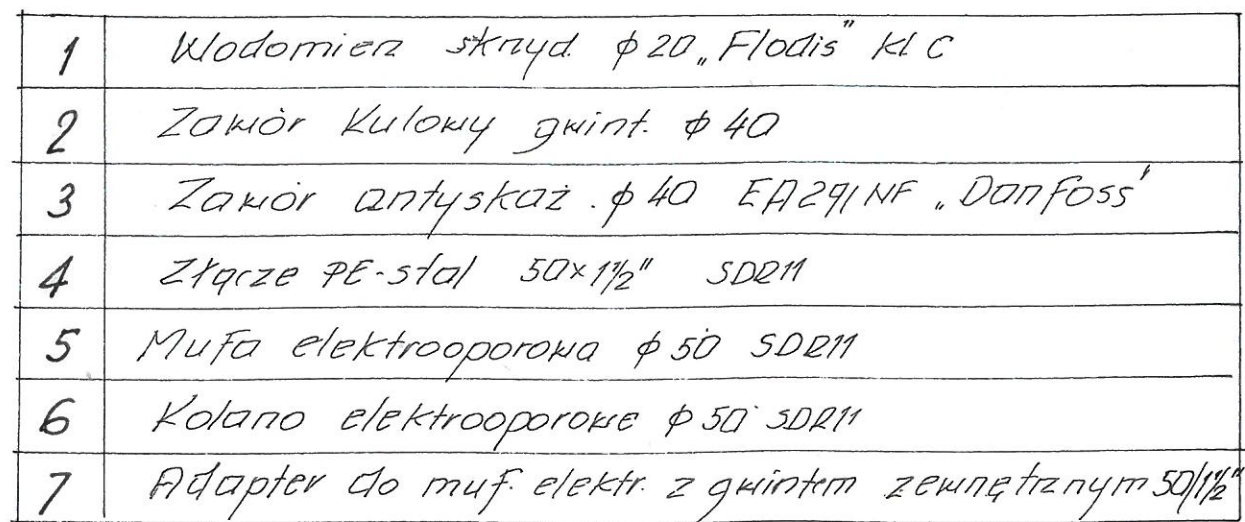 1 Wodomierz skrzyd. ϕ20 „Flodis" kl C
2 Zawór kulowy gwint. ϕ40
3 Zawór antyskaż. ϕ40 EA291NF „Danfoss"
4 Złącze PE-stal 50×1½" SDR11
5 Mufa elektrooporowa ϕ50 SDR11
6 Kolano elektrooporowe ϕ50 SDR11
7 Adapter do muf. elektr. z gwintem zewnętrznym 50/1½"